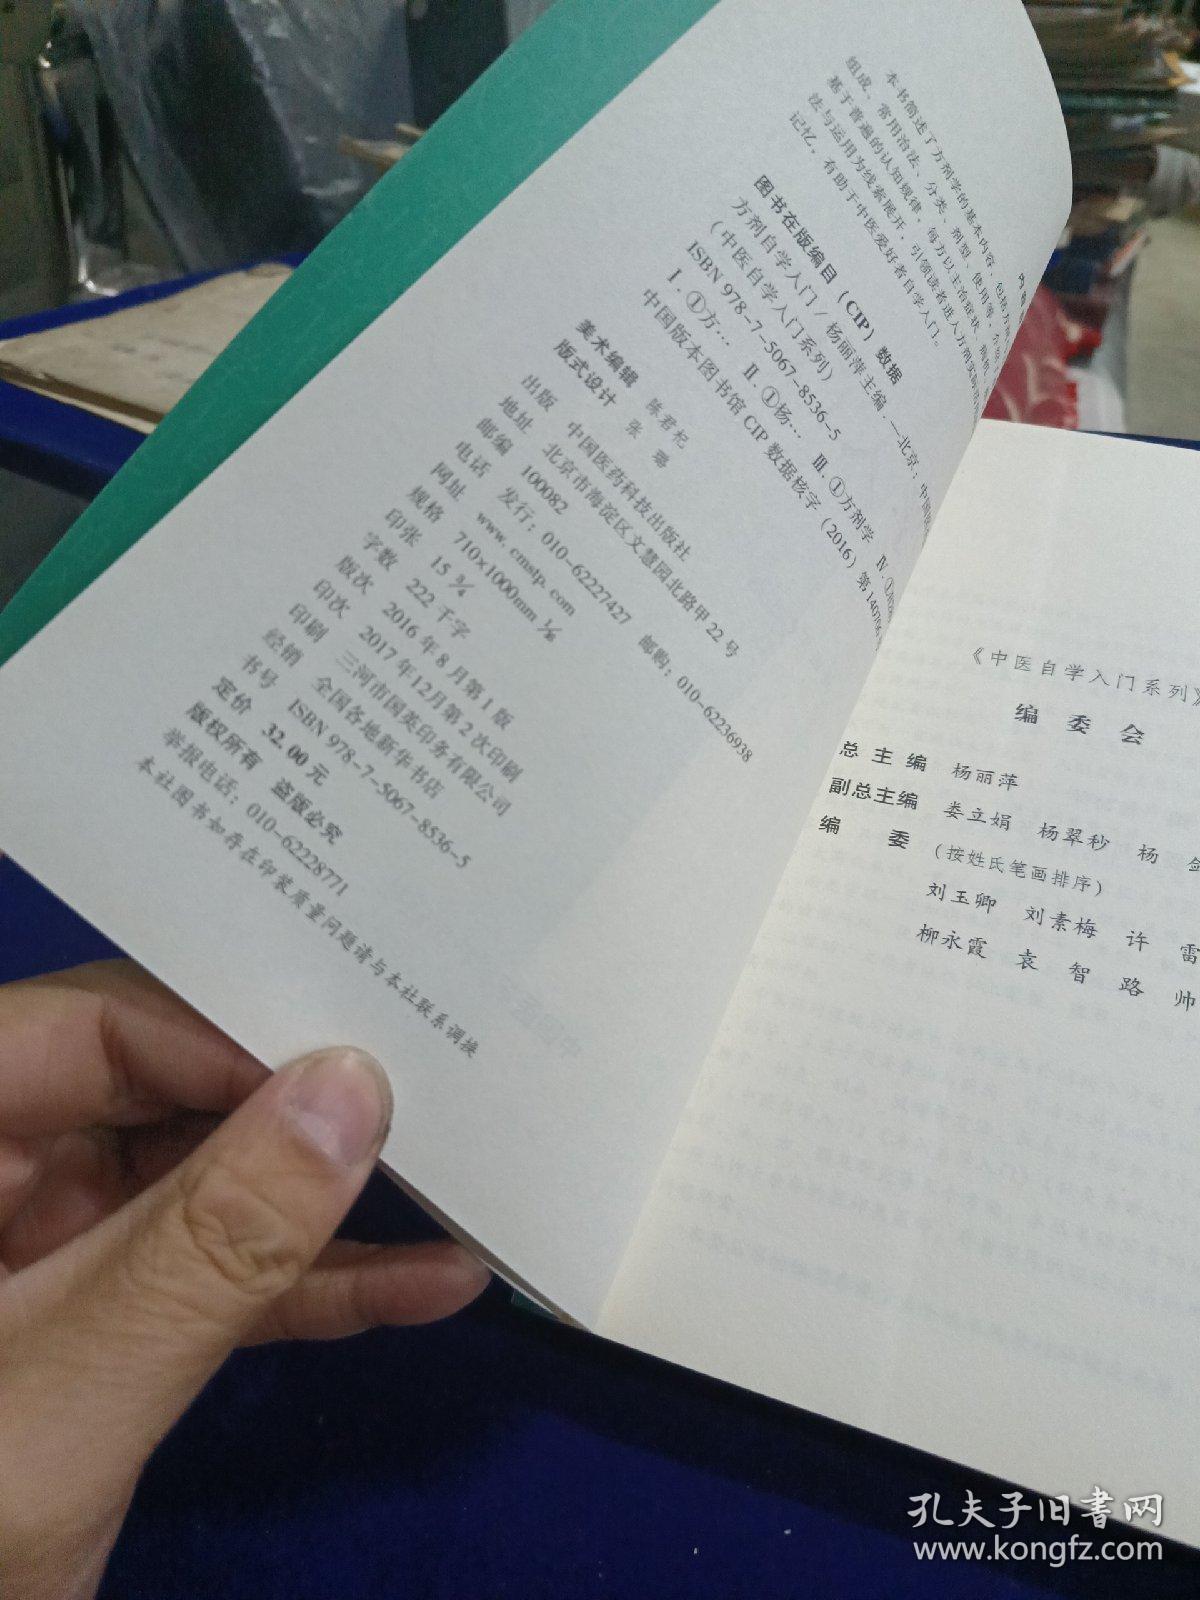 本书简述了方剂学的基本内容，包括方剂
组成、常用治法、分类、剂型、使用等，
基于普遍的认知规律，每方以主治症状、病机、
法与运用为线索展开，引领读者进入方剂实际
记忆，有助于中医爱好者自学入门。
图书在版编目（CIP）数据
方剂自学入门/杨丽萍主编.—北京：中国医
（中医自学入门系列）
ISBN 978-7-5067-8536-5
Ⅰ.①方… Ⅱ.①杨… Ⅲ.①方剂学 Ⅳ.①
中国版本图书馆CIP数据核字（2016）第140706
美术编辑 陈君杞
版式设计 张 璐
出版 中国医药科技出版社
地址 北京市海淀区文慧园北路甲22号
邮编 100082
电话 发行：010-62227427 邮购：010-62236938
网址 www.cmstp.com
规格 710×1000mm 1/16
印张 15 3/4
字数 222千字
版次 2016年8月第1版
印次 2017年12月第2次印刷
印刷 三河市国英印务有限公司
经销 全国各地新华书店
书号 ISBN 978-7-5067-8536-5
定价 32.00元
版权所有 盗版必究
举报电话：010-62228771
本社图书如存在印装质量问题请与本社联系调换
《中医自学入门系列》
编委会
总主编 杨丽萍
副总主编 娄立娟 杨翠秒 杨 剑
编 委 （按姓氏笔画排序）
刘玉卿 刘素梅 许 雷
柳永霞 袁 智 路 帅
孔夫子旧書网
www.kongfz.com